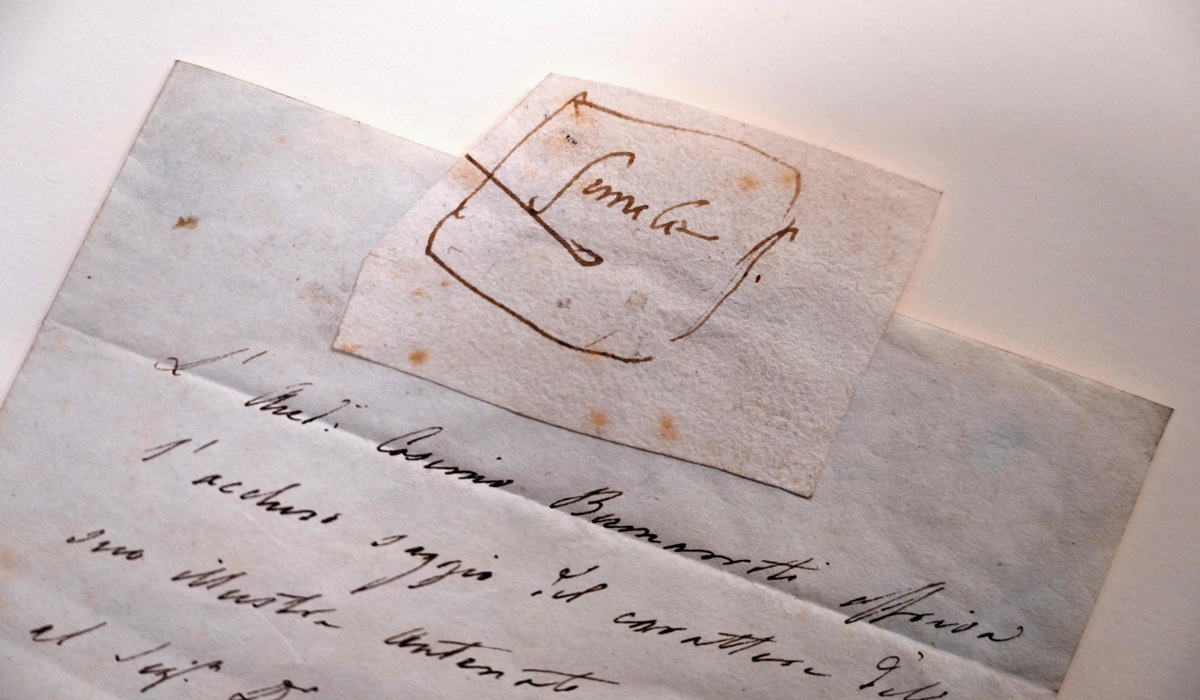 L' Cosimo Buonarroti offriva
l'accluso saggio del carattere dell
suo illustre antenato
al Sigr. Dr